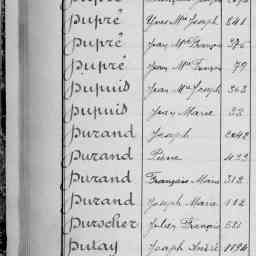 Dupré Yves Mie Joseph 241
Dupré Jean Mie François
Dupré Jean Mie François 79
Dupuis Jean Mie Joseph 363
Dupuis Jean Marie 33
Durand Joseph
Durand Pierre 433
Durand François Marie 312
Durand Joseph Marie 102
Durocher Julien François 521
Dutay Joseph André 1194